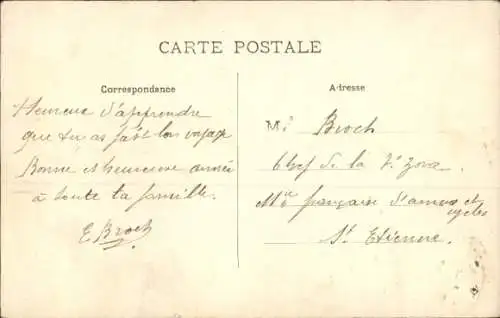 CARTE POSTALE
Correspondance
Heureux d'apprendre
que tu as fait bon voyage
Bonne et heureuse année
à toute ta famille.
E. Broch
Adresse
Mr Broch
Chef de la
Mre française d'armes et
cycles
St Etienne.